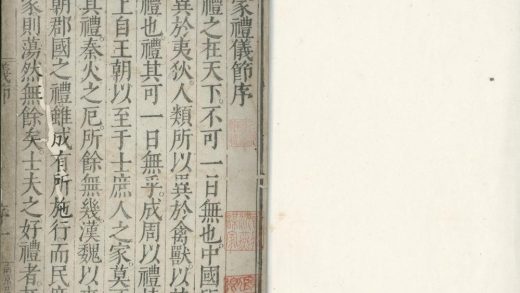 家禮儀節序
禮之在天下。不可一日無也。中國所
異於夷狄人類所以異於禽獸。以其
禮也。禮其可一日無乎。成周以禮持
上自王朝以至于士庶人之家。莫不
其禮。秦火之厄。所餘無幾。漢魏以來
朝郡國之禮雖或有所施行而民庶
家則蕩然無餘矣。士夫之好禮者。
儀節
序一